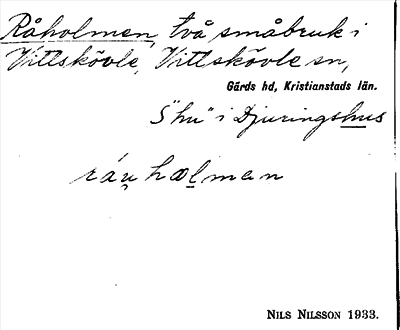 Råholmen, två småbruk i
Vittskövle, Vittskövle sn,
Gärds hd, Kristianstads län.
S "hu" i Djuringshus
ráu̯hol̯man
NILS NILSSON 1933.